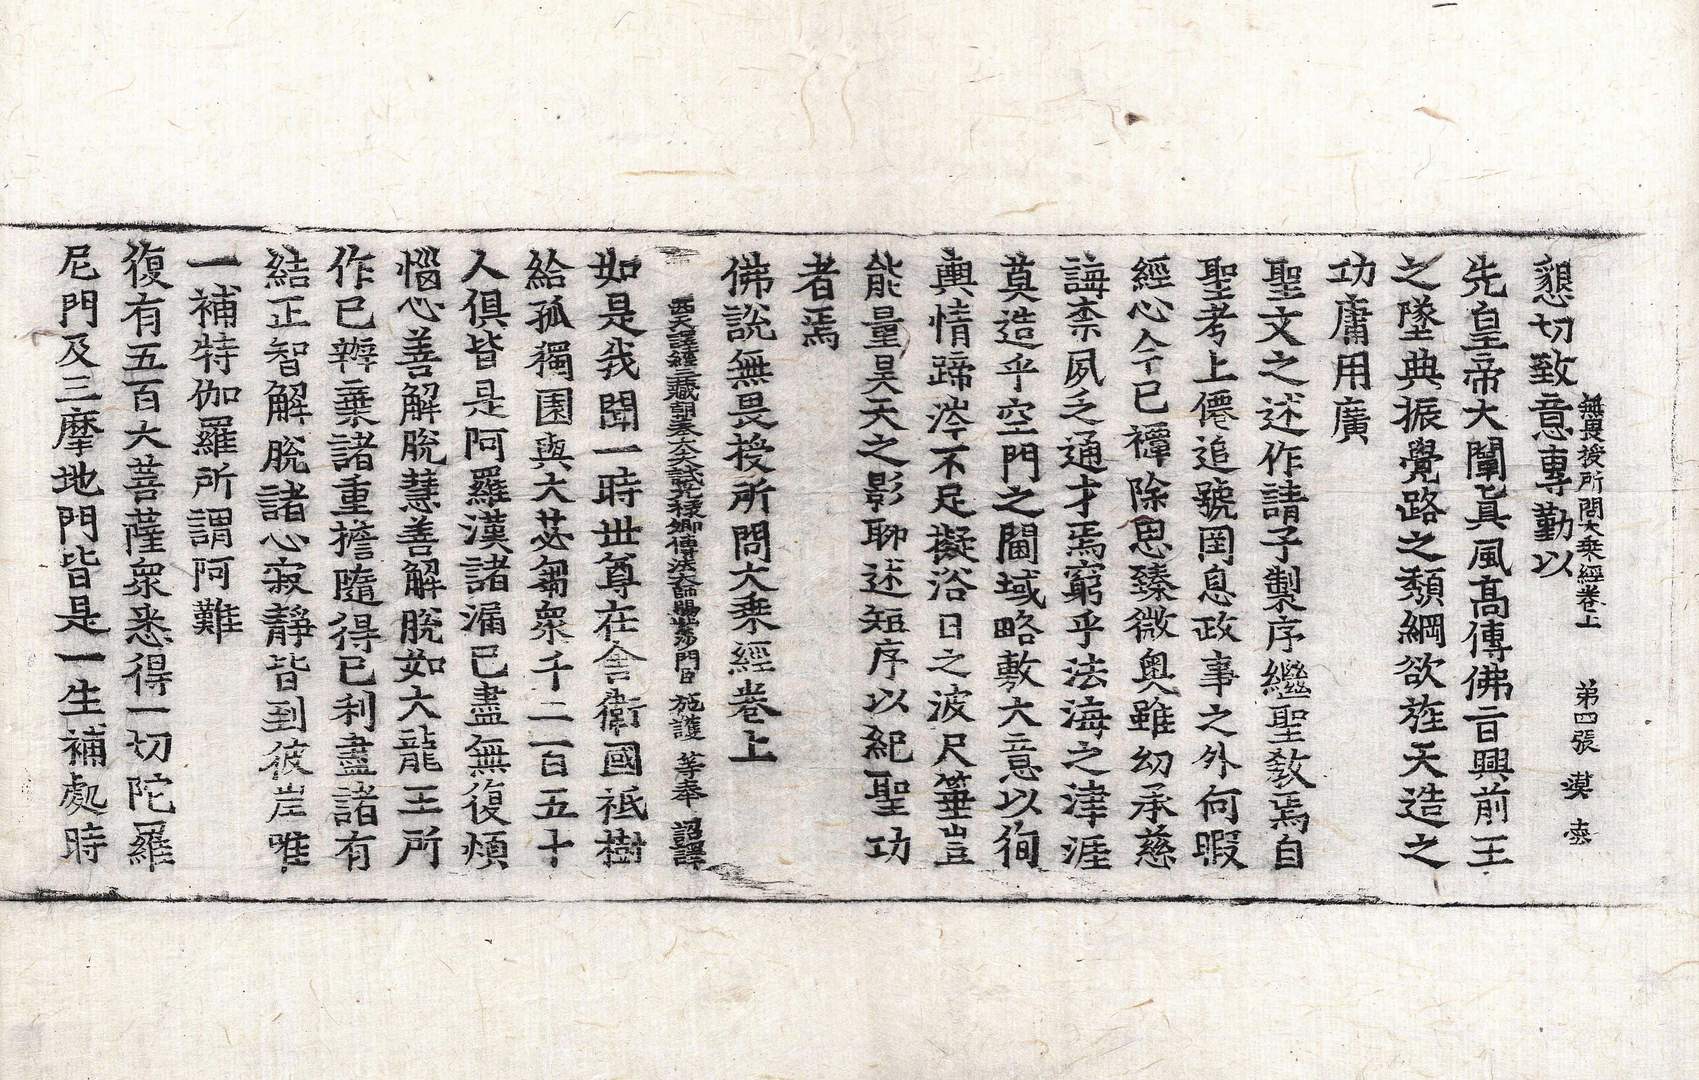 無畏授所問大乗經卷上 第四張 漠 㮈
懇切致意專勤以
先皇帝大闡眞風高傳佛旨興前王
之墜典振覺路之頹綱欲旌天造之
功庸用廣
聖文之述作請予製序繼聖教焉自
聖考上僊追號罔息政事之外何暇
經心今已禫除思臻微奧雖幼承慈
誨柰夙乏通才焉窮乎法海之津涯
莫造乎空門之閫域略敷大意以徇
輿情蹄涔不足擬浴日之波尺箠豈
能量昊天之影聊述短序以紀聖功
者焉
佛說無畏授所問大乗經卷上
西天譯經三藏朝奉大夫試光祿卿傳法大師賜紫沙門臣 施護 等奉 詔譯
如是我聞一時世尊在舍衛國祇樹
給孤獨園與大苾芻衆千二百五十
人俱皆是阿羅漢諸漏已盡無復煩
惱心善解脫慧善解脫如大龍王所
作已辦棄諸重擔隨得已利盡諸有
結正智解脫諸心寂靜皆到彼岸唯
一補特伽羅所謂阿難
復有五百大菩薩衆悉得一切陀羅
尼門及三摩地門皆是一生補處時